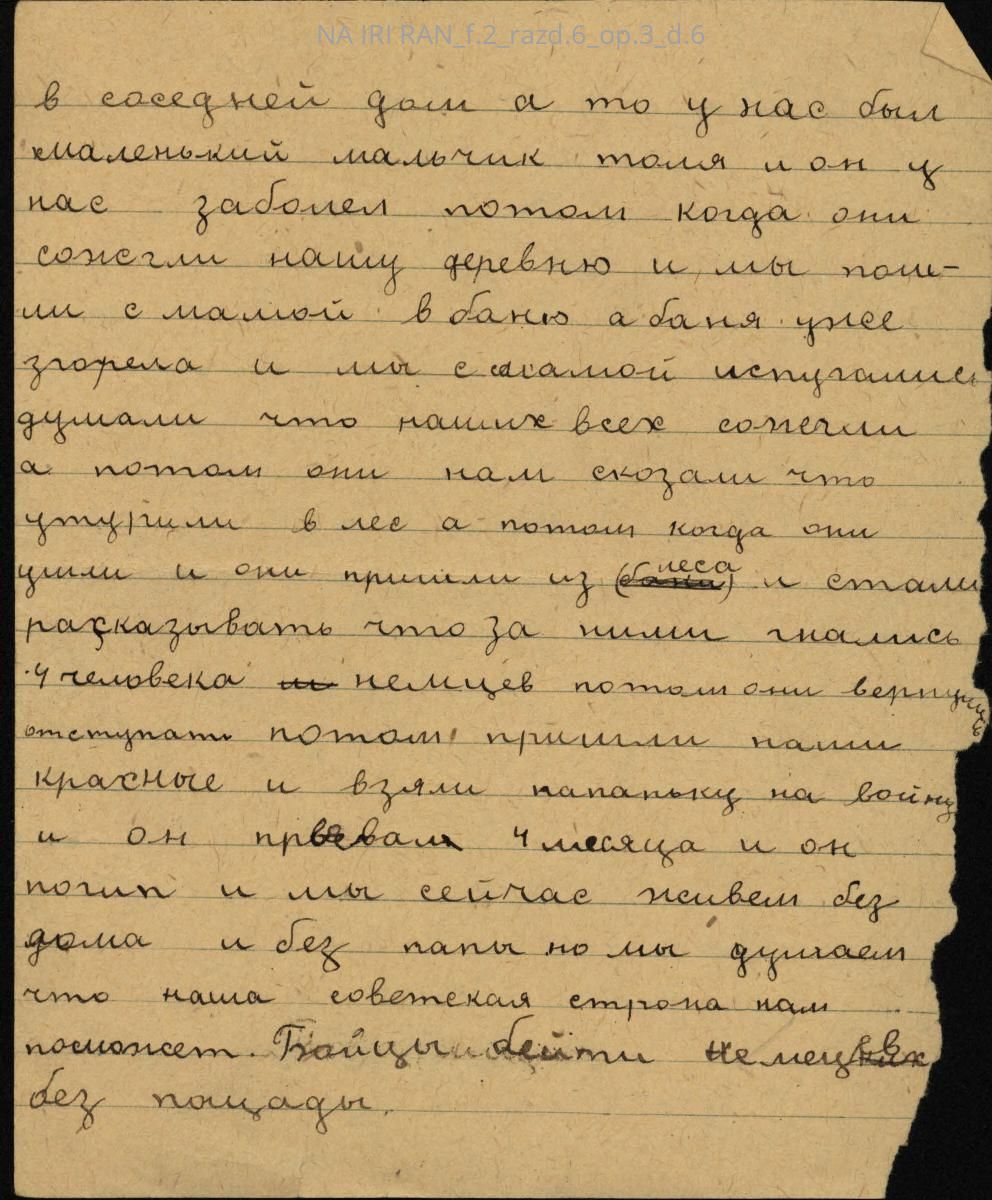 NA IRI RAN_f.2_razd.6_op.3_d.6
в соседней дом а то у нас был
маленький мальчик толя и он у
нас заболел потом когда они
сожгли нашу деревню и мы пош-
ли с мамой в баню а баня уже
згорела и мы с мамой испугались
думали что наших всех сожгли
а потом они нам скозали что
утурили в лес а потом когда они
ушли и они пришли из (бани) леса и стали
расказывать что за ними гнались
4 человека немцев потом они вернулись
отступать потом пришли наши
красные и взяли папаньку на войну
и он 4 месяца и он
погип и мы сейчас живем без
дома и без папы но мы думаем
что наша советская строна нам
посможет. Бойцы бейти немецвв
без пощады.